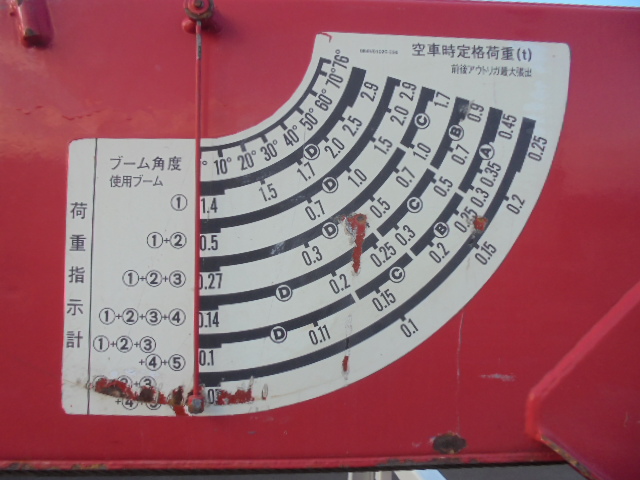 空車時定格荷重(t)
前後アウトリガ最大張出
ブーム角度
使用ブーム
荷重指示計
° 10° 20° 30° 40° 50° 60° 70° 76°
① 1.4 1.5 1.7 D 2.0 2.5 2.9
①+② 0.5 0.7 D 1.0 1.5 2.0 2.9
①+②+③ 0.27 0.3 D 0.5 0.7 1.0 C 1.7
①+②+③+④ 0.14 D 0.2 0.25 0.3 C 0.5 0.7 B 0.9
①+②+③
+④+⑤ 0.1 D 0.11 0.15 C 0.2 B 0.25 0.3 0.35 A 0.45
0.1 0.15 0.2 0.25